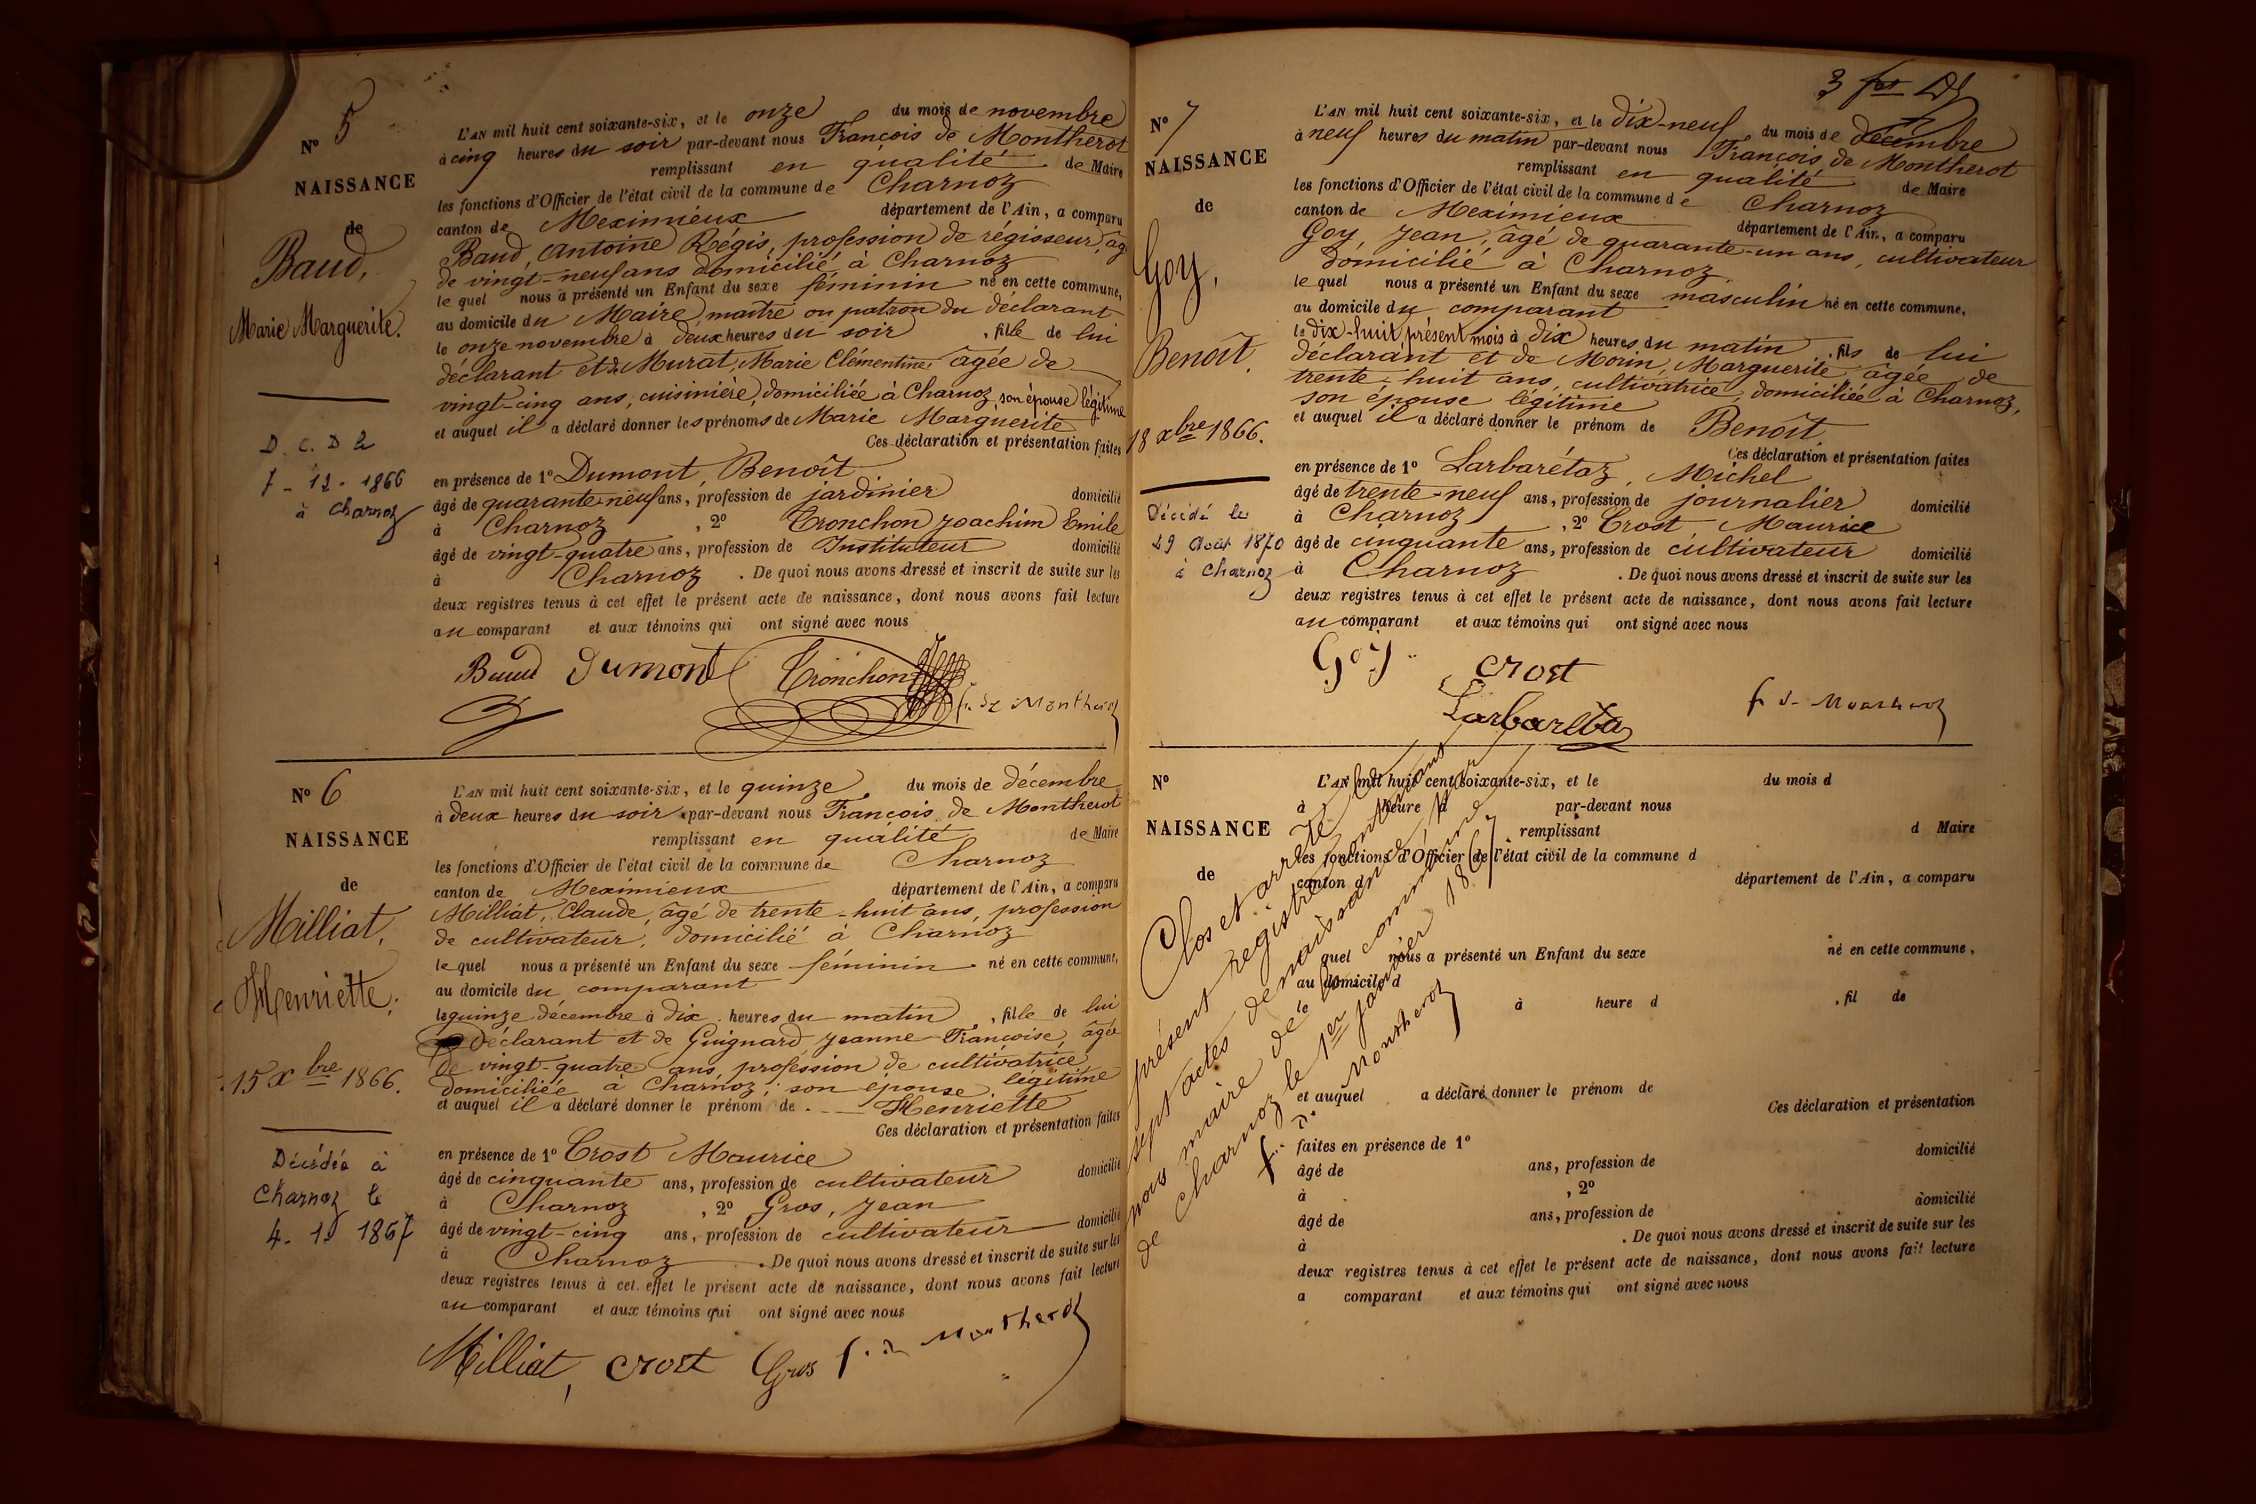 N° 5
NAISSANCE
de
Baud,
Marie Marguerite.
D. C. D le
7 - 12 - 1866
à Charnoz
L'AN mil huit cent soixante-six, et le onze du mois de novembre
à cinq heures du soir par-devant nous François de Montherot
remplissant en qualité de Maire
les fonctions d'Officier de l'état civil de la commune de Charnoz
canton de Meximieux département de l'Ain, a comparu
Baud, Antoine Régis, profession de régisseur, âgé
de vingt-neuf ans domicilié à Charnoz
le quel nous a présenté un Enfant du sexe féminin né en cette commune,
au domicile du Maire, maître ou patron du déclarant
le onze novembre à deux heures du soir, fille de lui
déclarant et de Murat, Marie Clémentine âgée de
vingt-cinq ans, cuisinière, domiciliée à Charnoz, son épouse légitime
et auquel il a déclaré donner les prénoms de Marie Marguerite
Ces déclaration et présentation faites
en présence de 1° Dumont, Benoît
âgé de quarante-neuf ans, profession de jardinier domicilié
à Charnoz, 2° Tronchon Joachim Emile
âgé de vingt-quatre ans, profession de Instituteur domicilié
à Charnoz. De quoi nous avons dressé et inscrit de suite sur les
deux registres tenus à cet effet le présent acte de naissance, dont nous avons fait lecture
au comparant et aux témoins qui ont signé avec nous
Baud Dumont Tronchon f. de Montherot
N° 6
NAISSANCE
de
Milliat,
Henriette.
15 Xbre 1866.
Décédée à
Charnoz le
4. 1. 1867
L'AN mil huit cent soixante-six, et le quinze du mois de décembre
à deux heures du soir par-devant nous François de Montherot
remplissant en qualité de Maire
les fonctions d'Officier de l'état civil de la commune de Charnoz
canton de Meximieux département de l'Ain, a comparu
Milliat, Claude, âgé de trente-huit ans, profession
de cultivateur, domicilié à Charnoz
le quel nous a présenté un Enfant du sexe féminin né en cette commune,
au domicile du comparant
le quinze décembre à dix heures du matin, fille de lui
déclarant et de Guignard Jeanne Françoise, âgée
de vingt-quatre ans, profession de cultivatrice
domiciliée à Charnoz, son épouse légitime
et auquel il a déclaré donner le prénom de Henriette
Ces déclaration et présentation faites
en présence de 1° Crost Maurice
âgé de cinquante ans, profession de cultivateur domicilié
à Charnoz, 2° Gros, Jean
âgé de vingt-cinq ans, profession de cultivateur domicilié
à Charnoz. De quoi nous avons dressé et inscrit de suite sur les
deux registres tenus à cet effet le présent acte de naissance, dont nous avons fait lecture
au comparant et aux témoins qui ont signé avec nous
Milliat, Crost Gros f. de Montherot
3
N° 7
NAISSANCE
de
Goy,
Benoît.
18 Xbre 1866.
Décédé le
29 Août 1870
à Charnoz
L'AN mil huit cent soixante-six, et le dix-neuf du mois de décembre
à neuf heures du matin par-devant nous François de Montherot
remplissant en qualité de Maire
les fonctions d'Officier de l'état civil de la commune de Charnoz
canton de Meximieux département de l'Ain, a comparu
Goy, Jean, âgé de quarante-un ans, cultivateur
domicilié à Charnoz
le quel nous a présenté un Enfant du sexe masculin né en cette commune,
au domicile du comparant
le dix-huit, présent mois à dix heures du matin, fils de lui
déclarant et de Morin, Marguerite, âgée de
trente-huit ans, cultivatrice, domiciliée à Charnoz,
son épouse légitime
et auquel il a déclaré donner le prénom de Benoît
Ces déclaration et présentation faites
en présence de 1° Larbarétaz, Michel
âgé de trente-neuf ans, profession de journalier domicilié
à Charnoz, 2° Crost Maurice
âgé de cinquante ans, profession de cultivateur domicilié
à Charnoz. De quoi nous avons dressé et inscrit de suite sur les
deux registres tenus à cet effet le présent acte de naissance, dont nous avons fait lecture
au comparant et aux témoins qui ont signé avec nous
Goy Crost
Larbareta f. d. Montherot
N°
NAISSANCE
de
L'AN mil huit cent soixante-six, et le du mois d
à heure d par-devant nous
remplissant d Maire
les fonctions d'Officier de l'état civil de la commune d
canton d département de l'Ain, a comparu
quel nous a présenté un Enfant du sexe né en cette commune,
au domicile d
le à heure d, fil de
et auquel a déclaré donner le prénom de
Ces déclaration et présentation
faites en présence de 1°
âgé de ans, profession de domicilié
à, 2°
âgé de ans, profession de domicilié
à. De quoi nous avons dressé et inscrit de suite sur les
deux registres tenus à cet effet le présent acte de naissance, dont nous avons fait lecture
a comparant et aux témoins qui ont signé avec nous
Clos et arrêté le
présent registre contenant
sept actes de naissance, par
nous maire de la commune
de Charnoz le 1er janvier 1867
f. d. Montherot